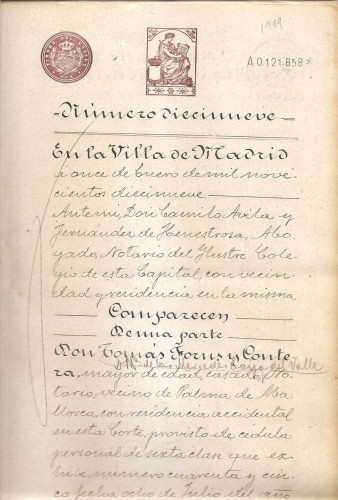 1919
A.0.121.858*
Número diecinueve
En la Villa de Madrid
á once de Enero de mil nove-
cientos diecinueve
Ante mi, Don Camilo Avila y
Fernández de Henestrosa, Abo-
gado, Notario del Ilustre Cole-
gio de esta Capital, con vecin-
dad y residencia en la misma
Comparecen
De una parte
Don Tomás Forns y Conte-
ra, mayor de edad, casado, No-
tario, vecino de Palma de Ma-
llorca, con residencia accidental
en esta Corte, provisto de cédula
personal de sexta clase que ex-
hibe, número cuarenta y cin-
co fecha ocho de Julio del año